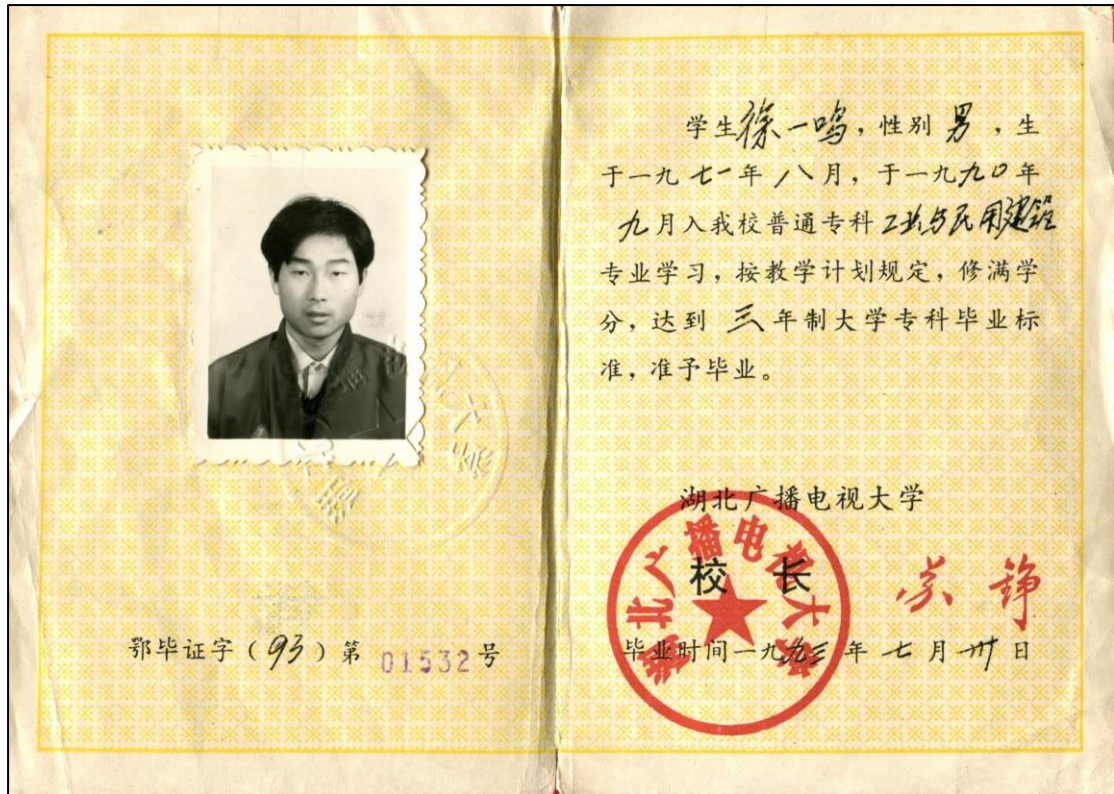 鄂毕证字（93）第 01532 号
学生徐一鸣，性别 男 ，生
于一九七一年八月，于一九九〇年
九月入我校普通专科 工业与民用建筑
专业学习，按教学计划规定，修满学
分，达到 三 年制大学专科毕业标
准，准予毕业。
湖北广播电视大学
校 长
湖北广播电视大学
毕业时间一九九三 年 七 月 卅 日